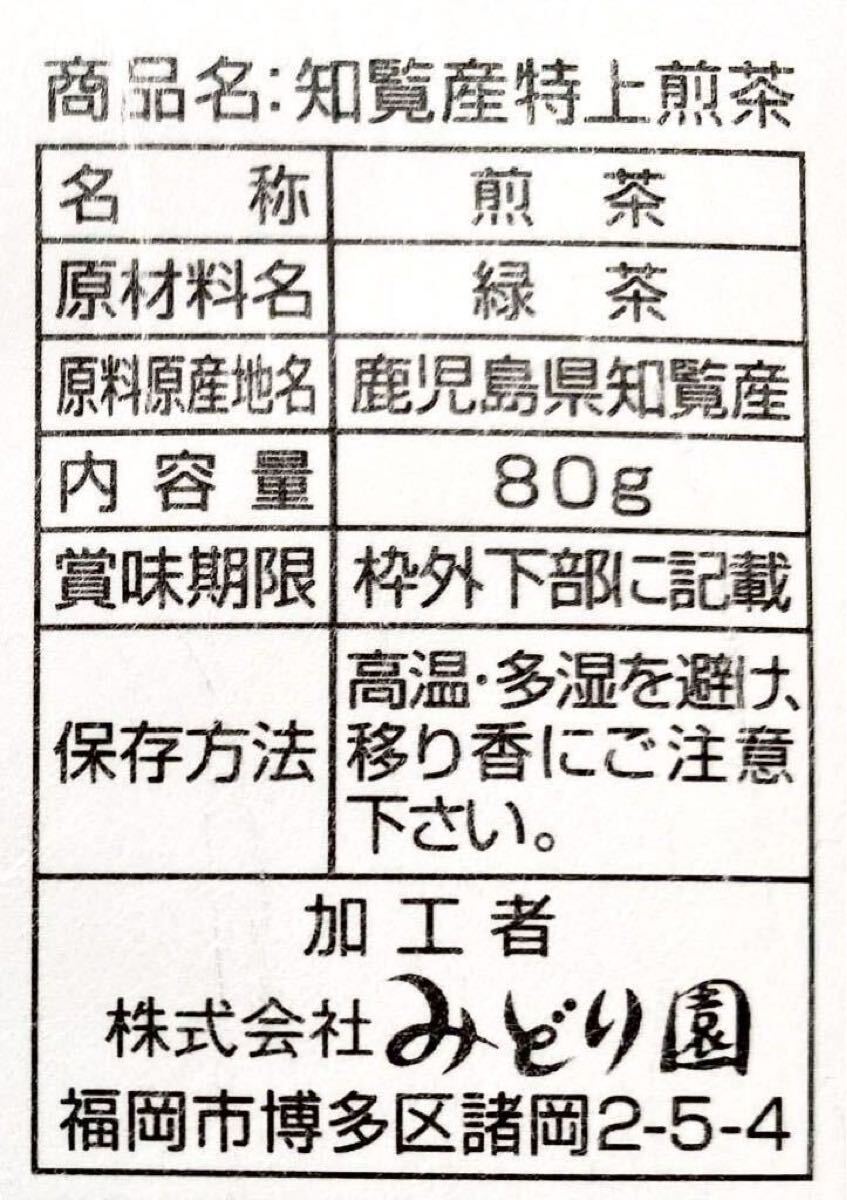 商品名:知覧産特上煎茶
名称 煎茶
原材料名 緑茶
原料原産地名 鹿児島県知覧産
内容量 80g
賞味期限 枠外下部に記載
保存方法 高温・多湿を避け、
移り香にご注意
下さい。
加工者
株式会社みどり園
福岡市博多区諸岡2-5-4